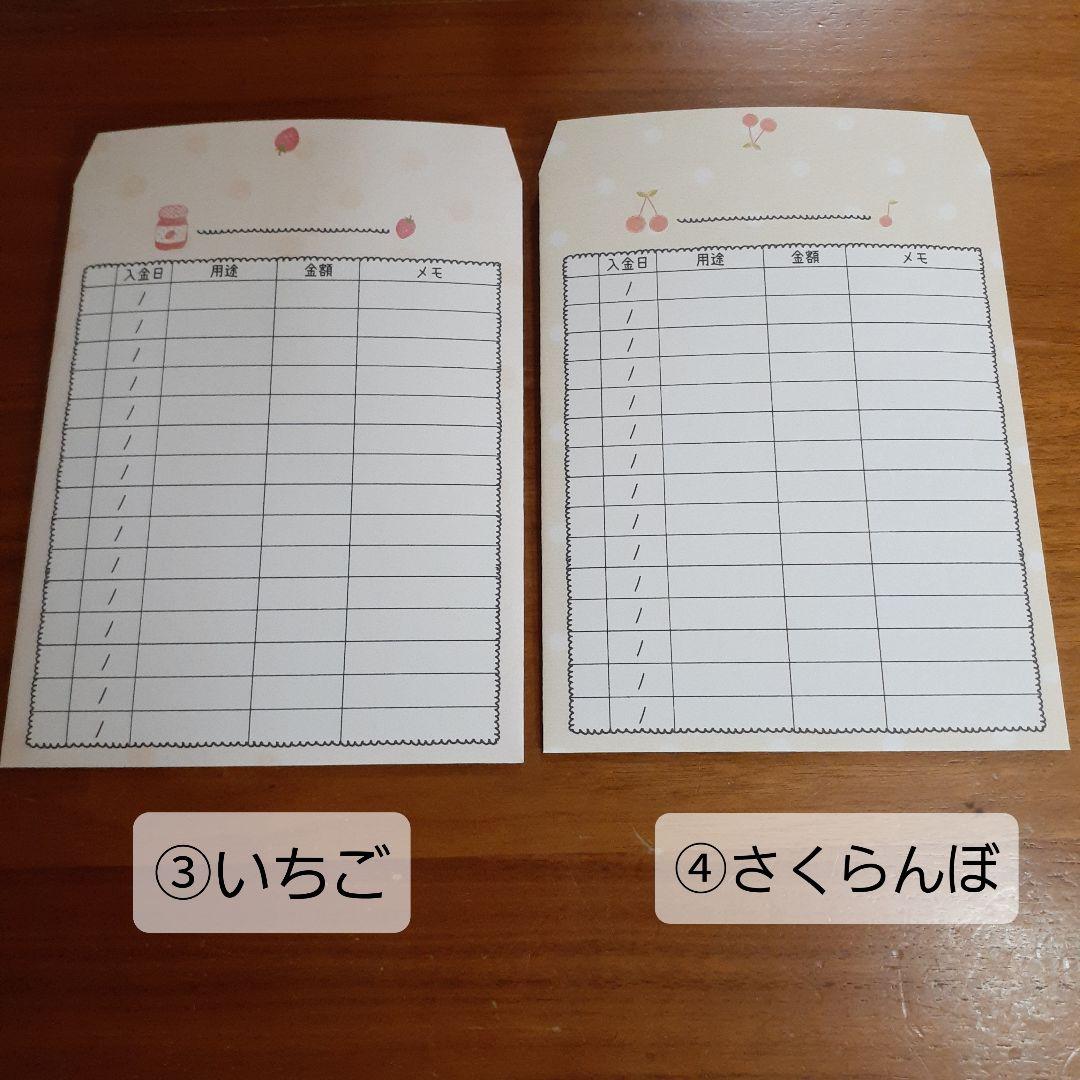 入金日 用途 金額 メモ
/
/
/
/
/
/
/
/
/
/
/
/
/
/
/
入金日 用途 金額 メモ
/
/
/
/
/
/
/
/
/
/
/
/
/
/
/
③いちご
④さくらんぼ